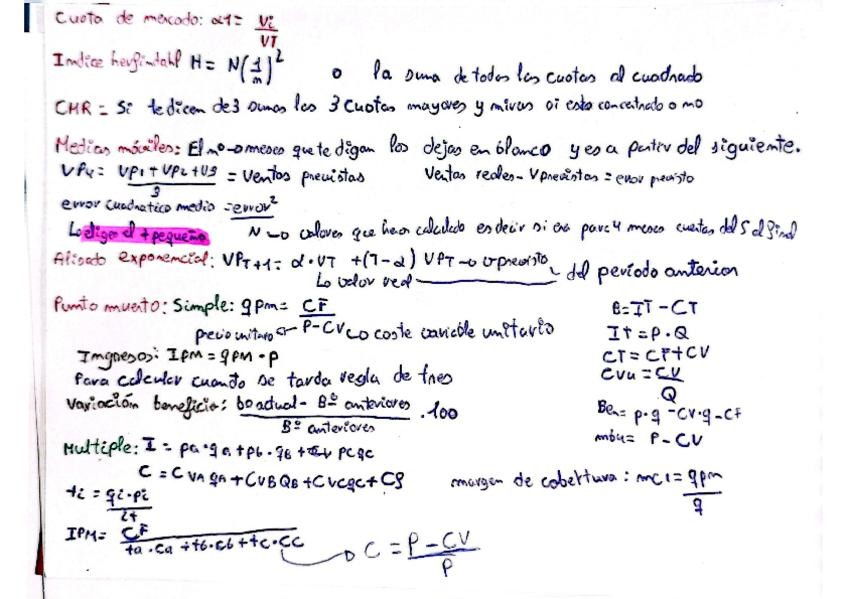 Cuota de mercado: α1 = Vi / VT
Indice herfindahl H = N(1/n)² o la suma de todas las cuotas al cuadrado
CHR = Si te dicen de 3 sumas las 3 cuotas mayores y miras si esta concentrado o no
Medias móviles: El nº → meses que te digan los dejas en blanco y es a partir del siguiente.
VP4 = VP1 + VP2 + V3 / 3 = Ventas previstas Ventas reales - V previstas = error previsto
error cuadratico medio = error² / N → valores que has calculado es decir si era para 4 meses cuentas del 5 al final
Lo eliges el + pequeño
Alisado exponencial: VPT+1 = α · VT + (1-α) VPT → v previsto del período anterior
Lo valor real
Punto muerto: Simple: qpm = CF / P - CV → coste variable unitario
precio unitario
B = IT - CT
IT = P · Q
Ingresos: IPM = qPM · P
CT = CF + CV
Para calcular cuando se tarda regla de tres
CVu = CV / Q
Variación beneficio: bº actual - Bº anteriores / Bº anteriores · 100
Ben = p · q - CV · q - CF
mbu = P - CV
Multiple: I = pa · qa + pb · qb + pcqc
C = CVA qA + CVB QB + CVcqc + CF
margen de cobertura: mc1 = qpm / q
ti = qi · pi / It
IPM = CF / ta · Ca + tb · Cb + tc · CC → C = P - CV / P